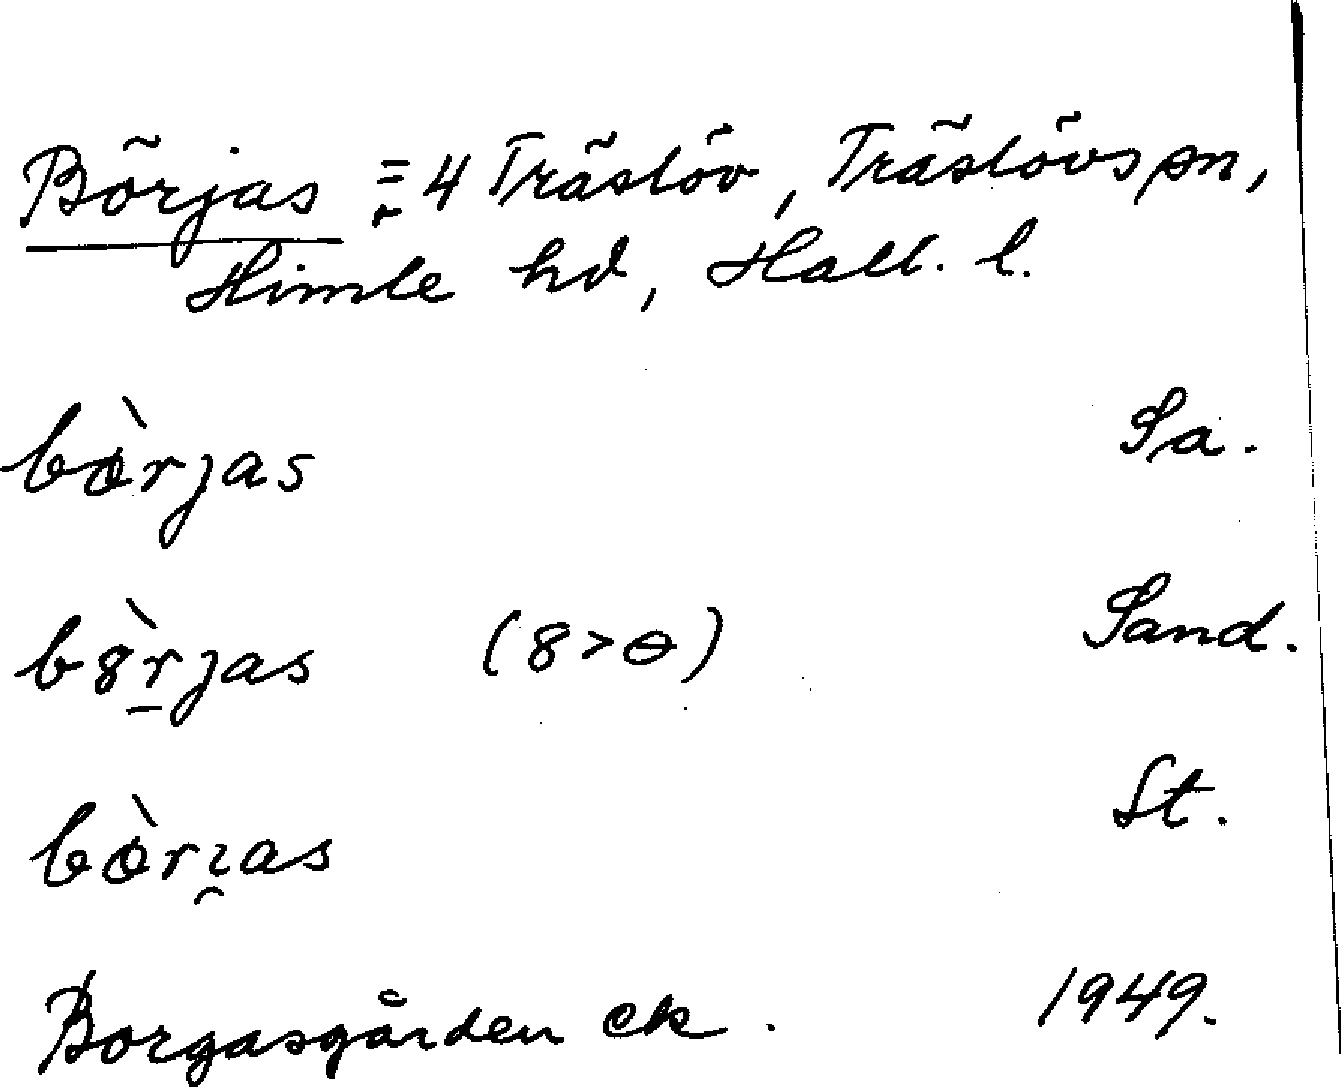 Börjas = 4 Träslöv, Träslövs sn,
Himle hd, Hall. l.
bɵ̀rjas Sa.
b8̀r̲jas (8>ɵ) Sand.
bɵ̀rı̯as St.
Borgasgården ek. 1949.